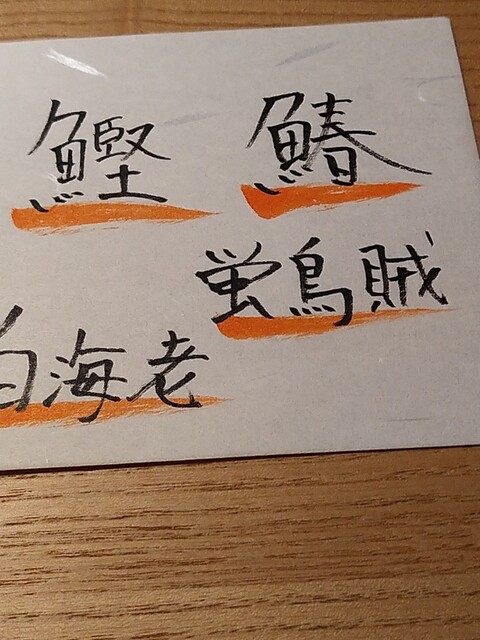 鰹 鰆
蛍鳥賊
白海老